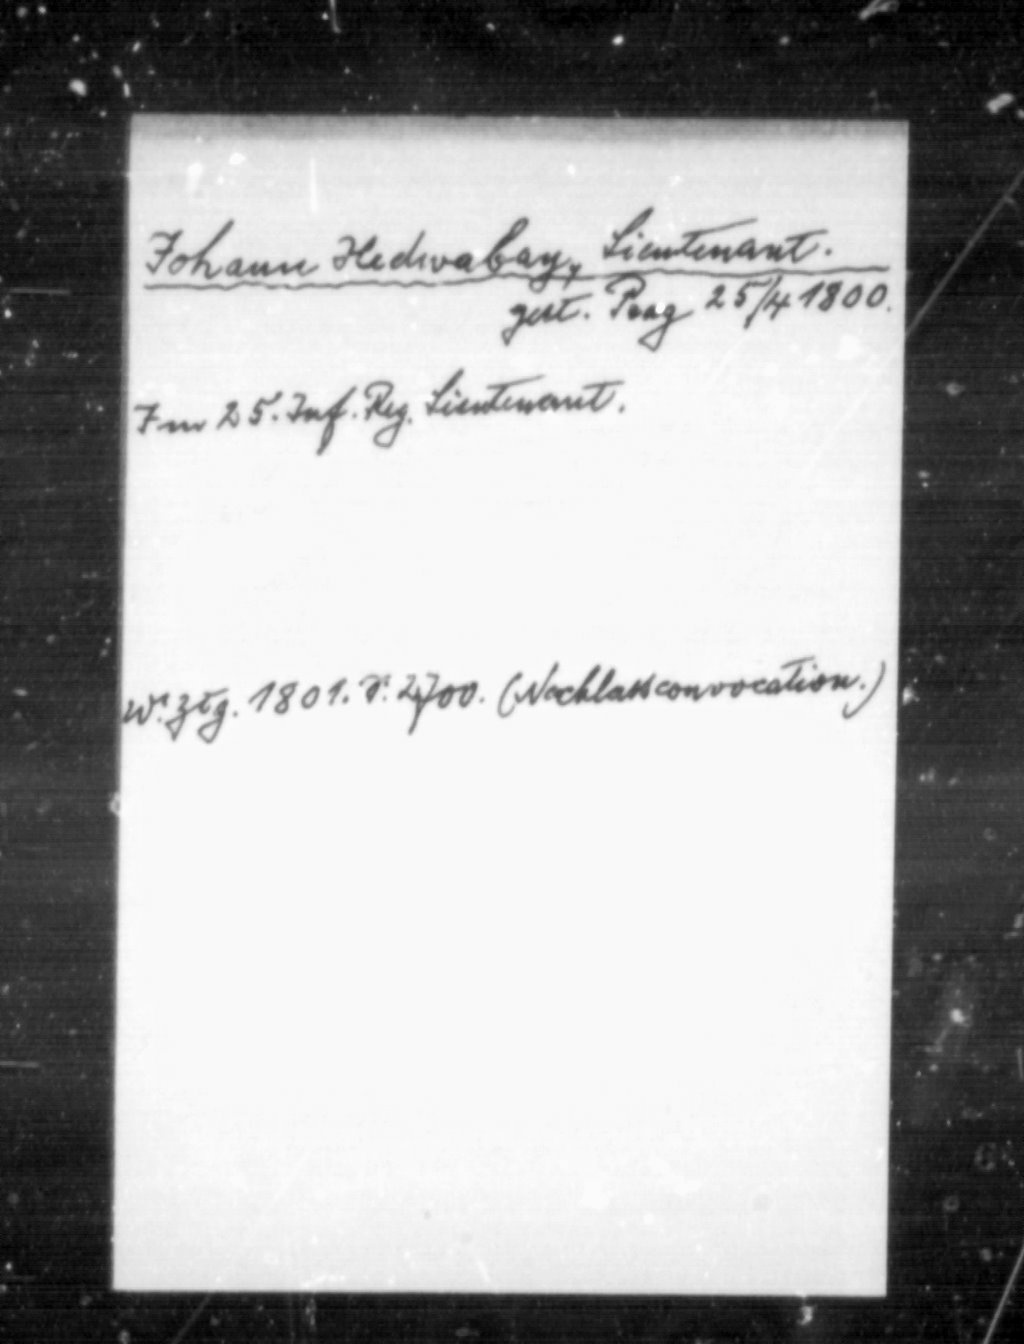 Johann Hedwabay, Lieutenant.
gest. Prag 25/4 1800.
Im 25. Inf. Reg. Lieutenant.
W. Ztg. 1801. S. 2700. (Nachlassconvocation.)